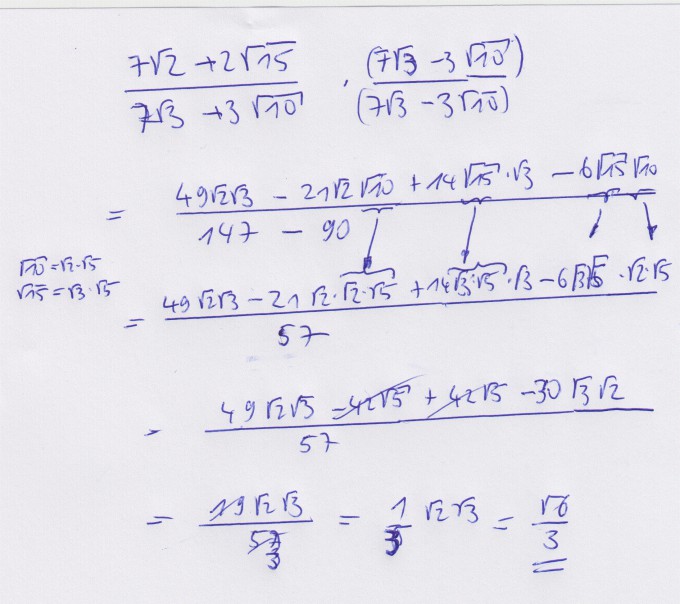 7√2 + 2√15 / 7√3 + 3√10 · (7√3 − 3√10) / (7√3 − 3√10)
= 49√2√3 − 21√2√10 + 14√15·√3 − 6√15√10 / 147 − 90
√10 = √2·√5
√15 = √3·√5
= 49√2√3 − 21√2·√2·√5 + 14√3·√5·√3 − 6√3√5·√2·√5 / 57
= 49√2√3 − 42√5 + 42√5 − 30√3√2 / 57
= 19√2√3 / 57 3 = 1/3 √2√3 = √6/3